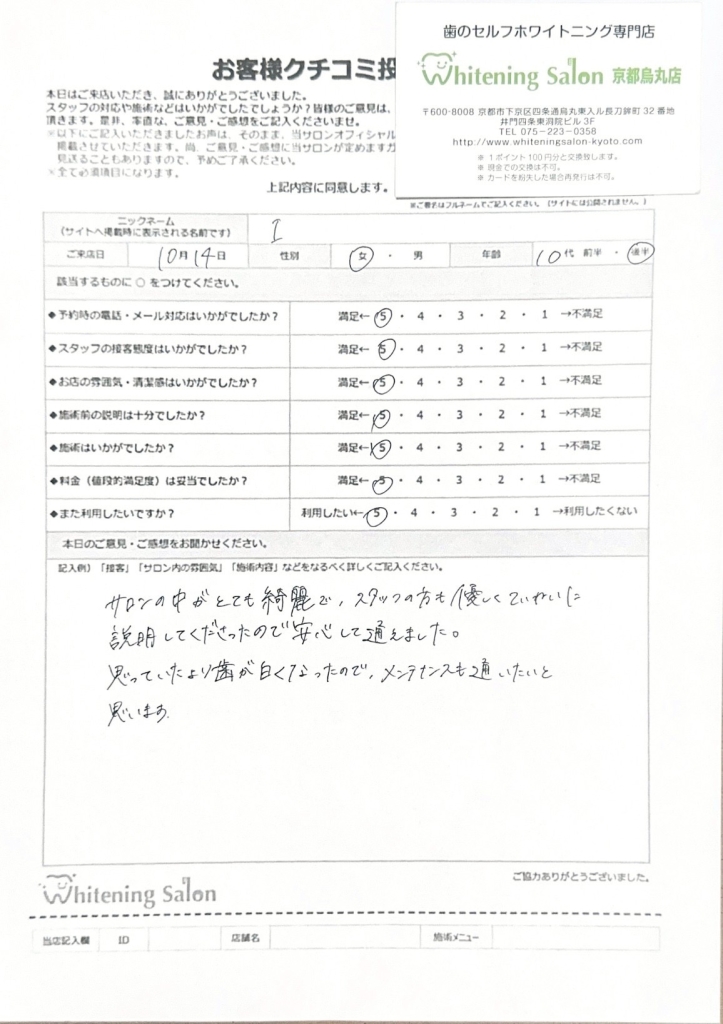 歯のセルフホワイトニング専門店
Whitening Salon 京都烏丸店
〒600-8008 京都市下京区四条通烏丸東入ル長刀鉾町 32 番地
井門四条東洞院ビル 3F
TEL 075-223-0358
http://www.whiteningsalon-kyoto.com
※ 1ポイント100円分と交換致します。
※ 現金での交換は不可。
※ カードを紛失した場合再発行は不可。
お客様クチコミ投
本日はご来店いただき、誠にありがとうございました。
スタッフの対応や施術などはいかがでしたでしょうか?皆様のご意見は、
頂きます。是非、率直な、ご意見・ご感想をご記入くださいませ。
※以下にご記入いただきましたお声は、そのまま、当サロンオフィシャル
掲載させていただきます。尚、ご意見・ご感想に当サロンが定めますガ
見送ることもありますので、予めご了承ください。
※全て必須項目になります。
上記内容に同意します。
※ご署名はフルネームでご記入ください。(サイトには公開されません。)
ニックネーム
(サイトへ掲載時に表示される名前です) I
ご来店日 10月14日 性別 女 ・ 男 年齢 10代 前半 ・ 後半
該当するものに ○ をつけてください。
◆予約時の電話・メール対応はいかがでしたか? 満足← 5 ・ 4 ・ 3 ・ 2 ・ 1 →不満足
◆スタッフの接客態度はいかがでしたか? 満足← 5 ・ 4 ・ 3 ・ 2 ・ 1 →不満足
◆お店の雰囲気・清潔感はいかがでしたか? 満足← 5 ・ 4 ・ 3 ・ 2 ・ 1 →不満足
◆施術前の説明は十分でしたか? 満足← 5 ・ 4 ・ 3 ・ 2 ・ 1 →不満足
◆施術はいかがでしたか? 満足← 5 ・ 4 ・ 3 ・ 2 ・ 1 →不満足
◆料金(値段的満足度)は妥当でしたか? 満足← 5 ・ 4 ・ 3 ・ 2 ・ 1 →不満足
◆また利用したいですか? 利用したい← 5 ・ 4 ・ 3 ・ 2 ・ 1 →利用したくない
本日のご意見・ご感想をお聞かせください。
記入例)「接客」「サロン内の雰囲気」「施術内容」などをなるべく詳しくご記入ください。
サロンの中がとても綺麗で、スタッフの方も優しくていねいに
説明してくださったので安心して通えました。
思っていたより歯が白くなったので、メンテナンスも通いたいと
思います。
ご協力ありがとうございました。
Whitening Salon
当店記入欄 ID 店舗名 施術メニュー